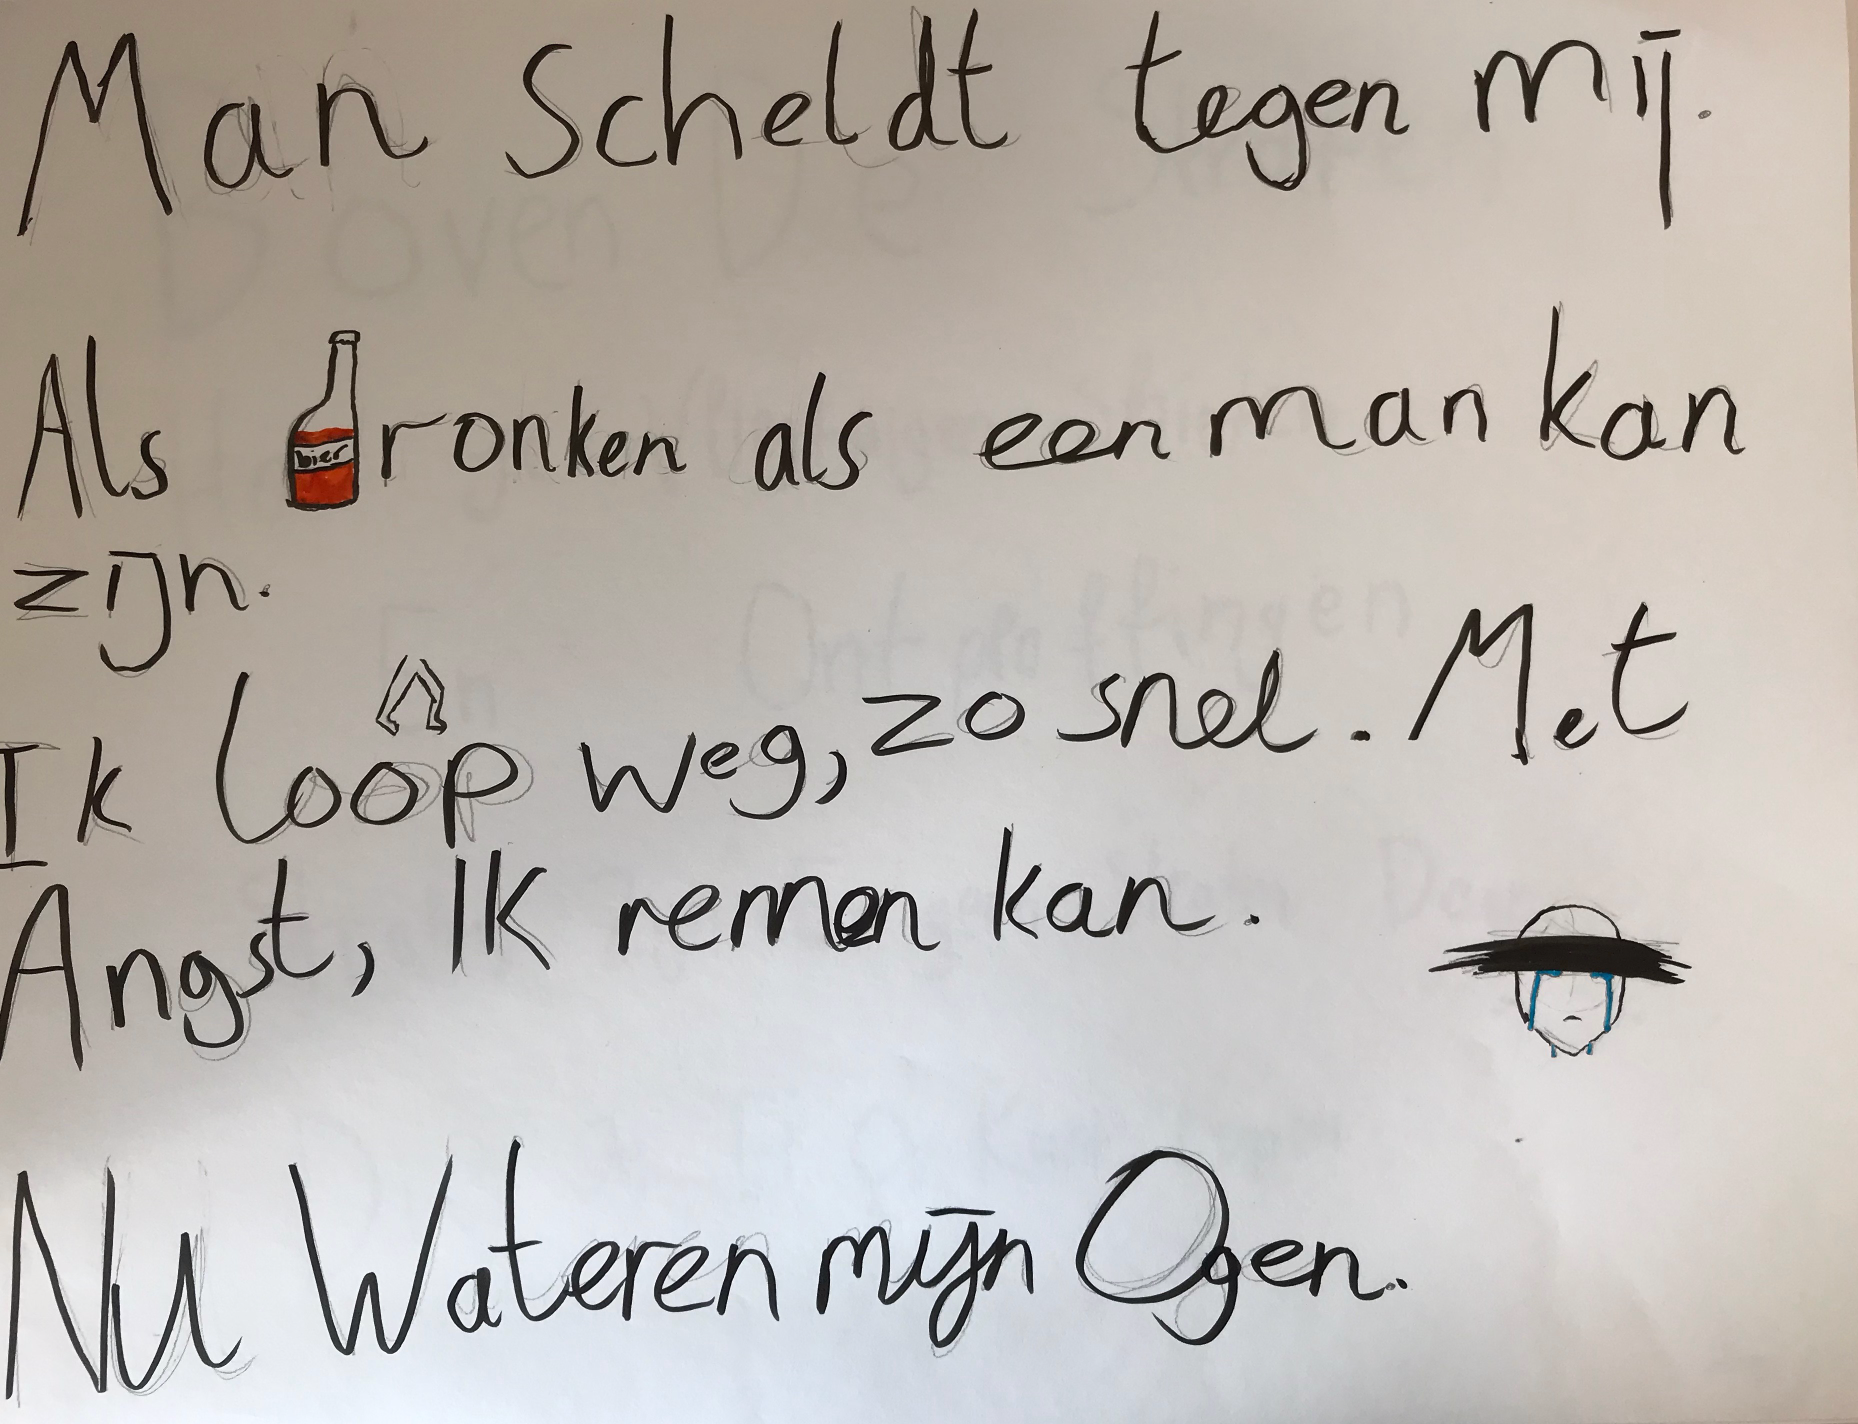 Man Scheldt tegen mij.
Als dronken als een man kan
zijn.
bier
Ik loop weg, zo snel. Met
Angst, Ik remen kan.
Nu Wateren mijn Ogen.